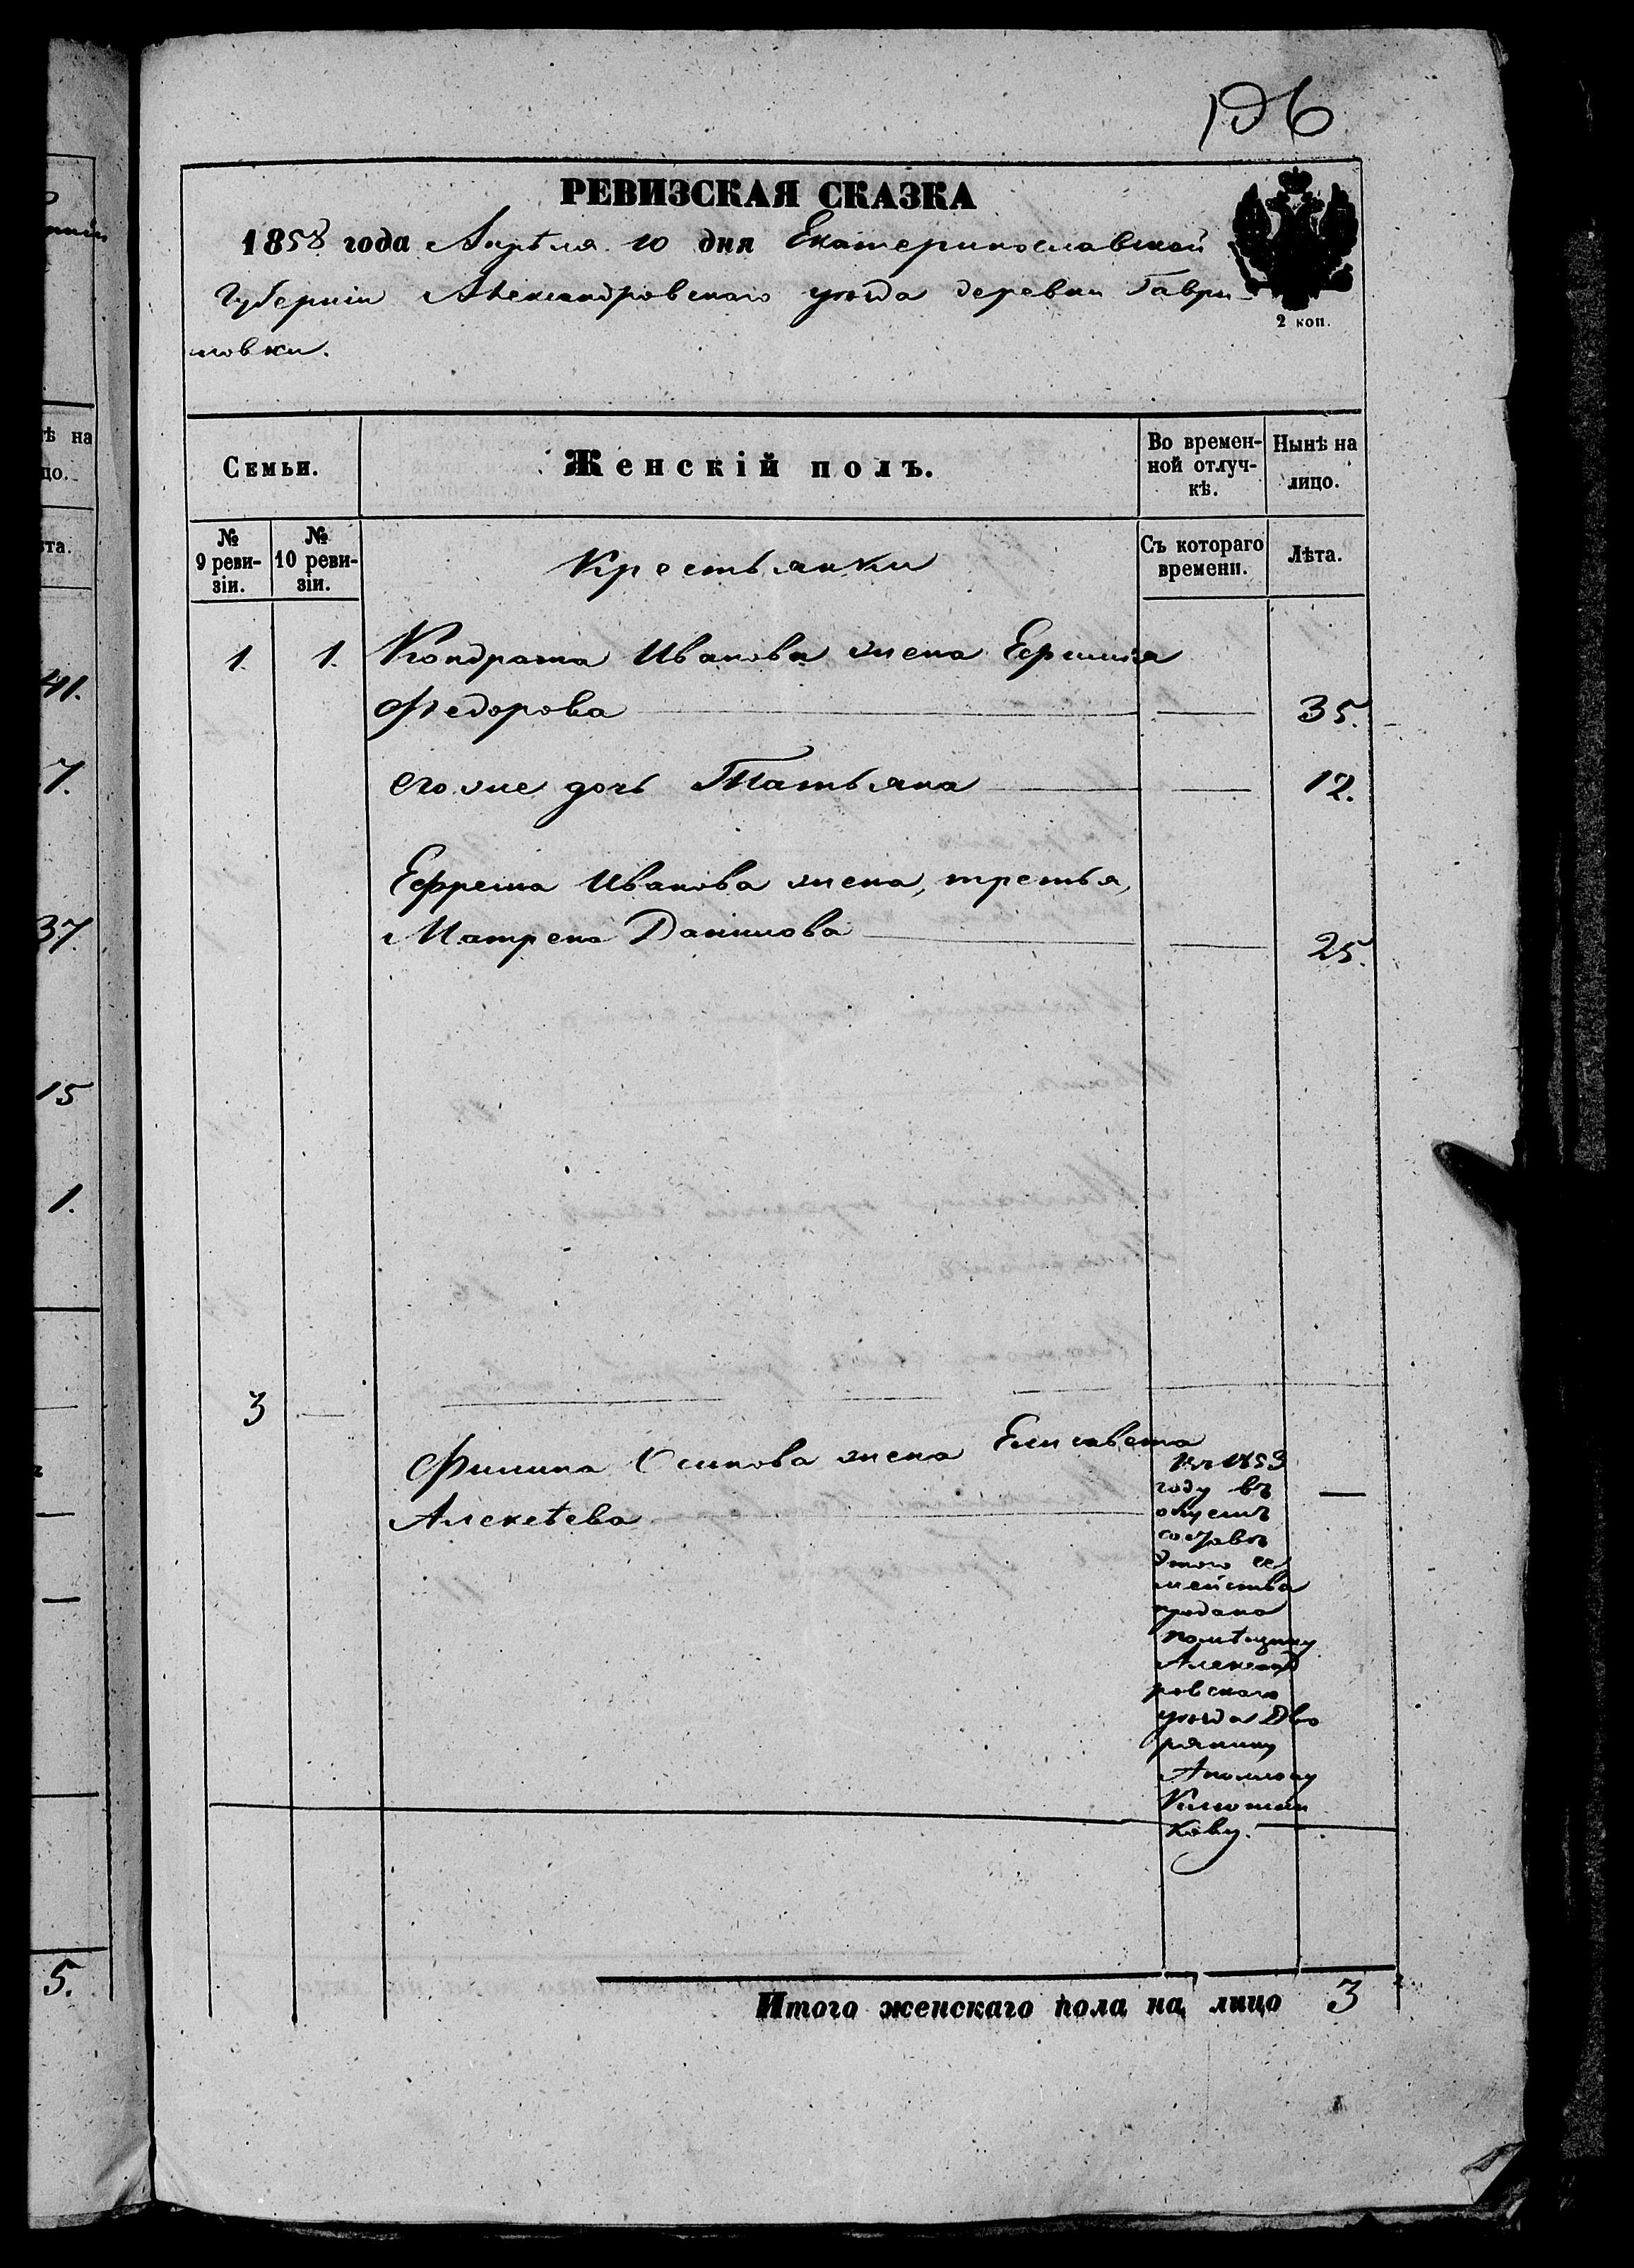 196
РЕВИЗСКАЯ СКАЗКА
1858 года Апрѣля 10 дня Екатеринославской
Губерніи Александровскаго уѣзда деревни Гаври-
ловки.
2 коп.
Семьи.
Женскій полъ.
Во времен-
ной отлуч-
кѣ.
Нынѣ на
лицо.
№
9 реви-
зіи.
№
10 реви-
зіи.
Крестьянки
Съ котораго
времени.
Лѣта.
1. 1. Кондрата Иванова жена
Федорова 35.
его же дочь Татьяна 12.
Ефрема Иванова жена, третья,
Матрена Данилова 25.
3
Филипа Осипова жена Елисавета
Алексѣева
въ 1853
году въ
общемъ
составѣ
этого се
мейства
продана
помѣщику
Александ
ровскаго
уѣзда Дво
рянину
Аполлону
кову.
Итого женскаго пола на лицо 3
ѣ на
цо.
та.
41.
7.
37.
15
1.
5.